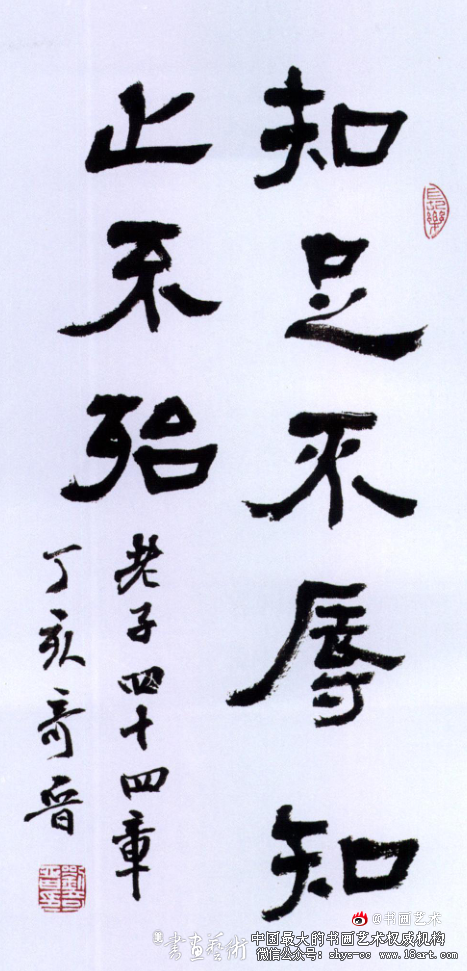 知足不辱知
止不殆
老子四十四章
丁亥奇晋
@书画艺术
書画藝術
中国最大的书画艺术权威机构
微信公众号：shys-cc www.18art.com